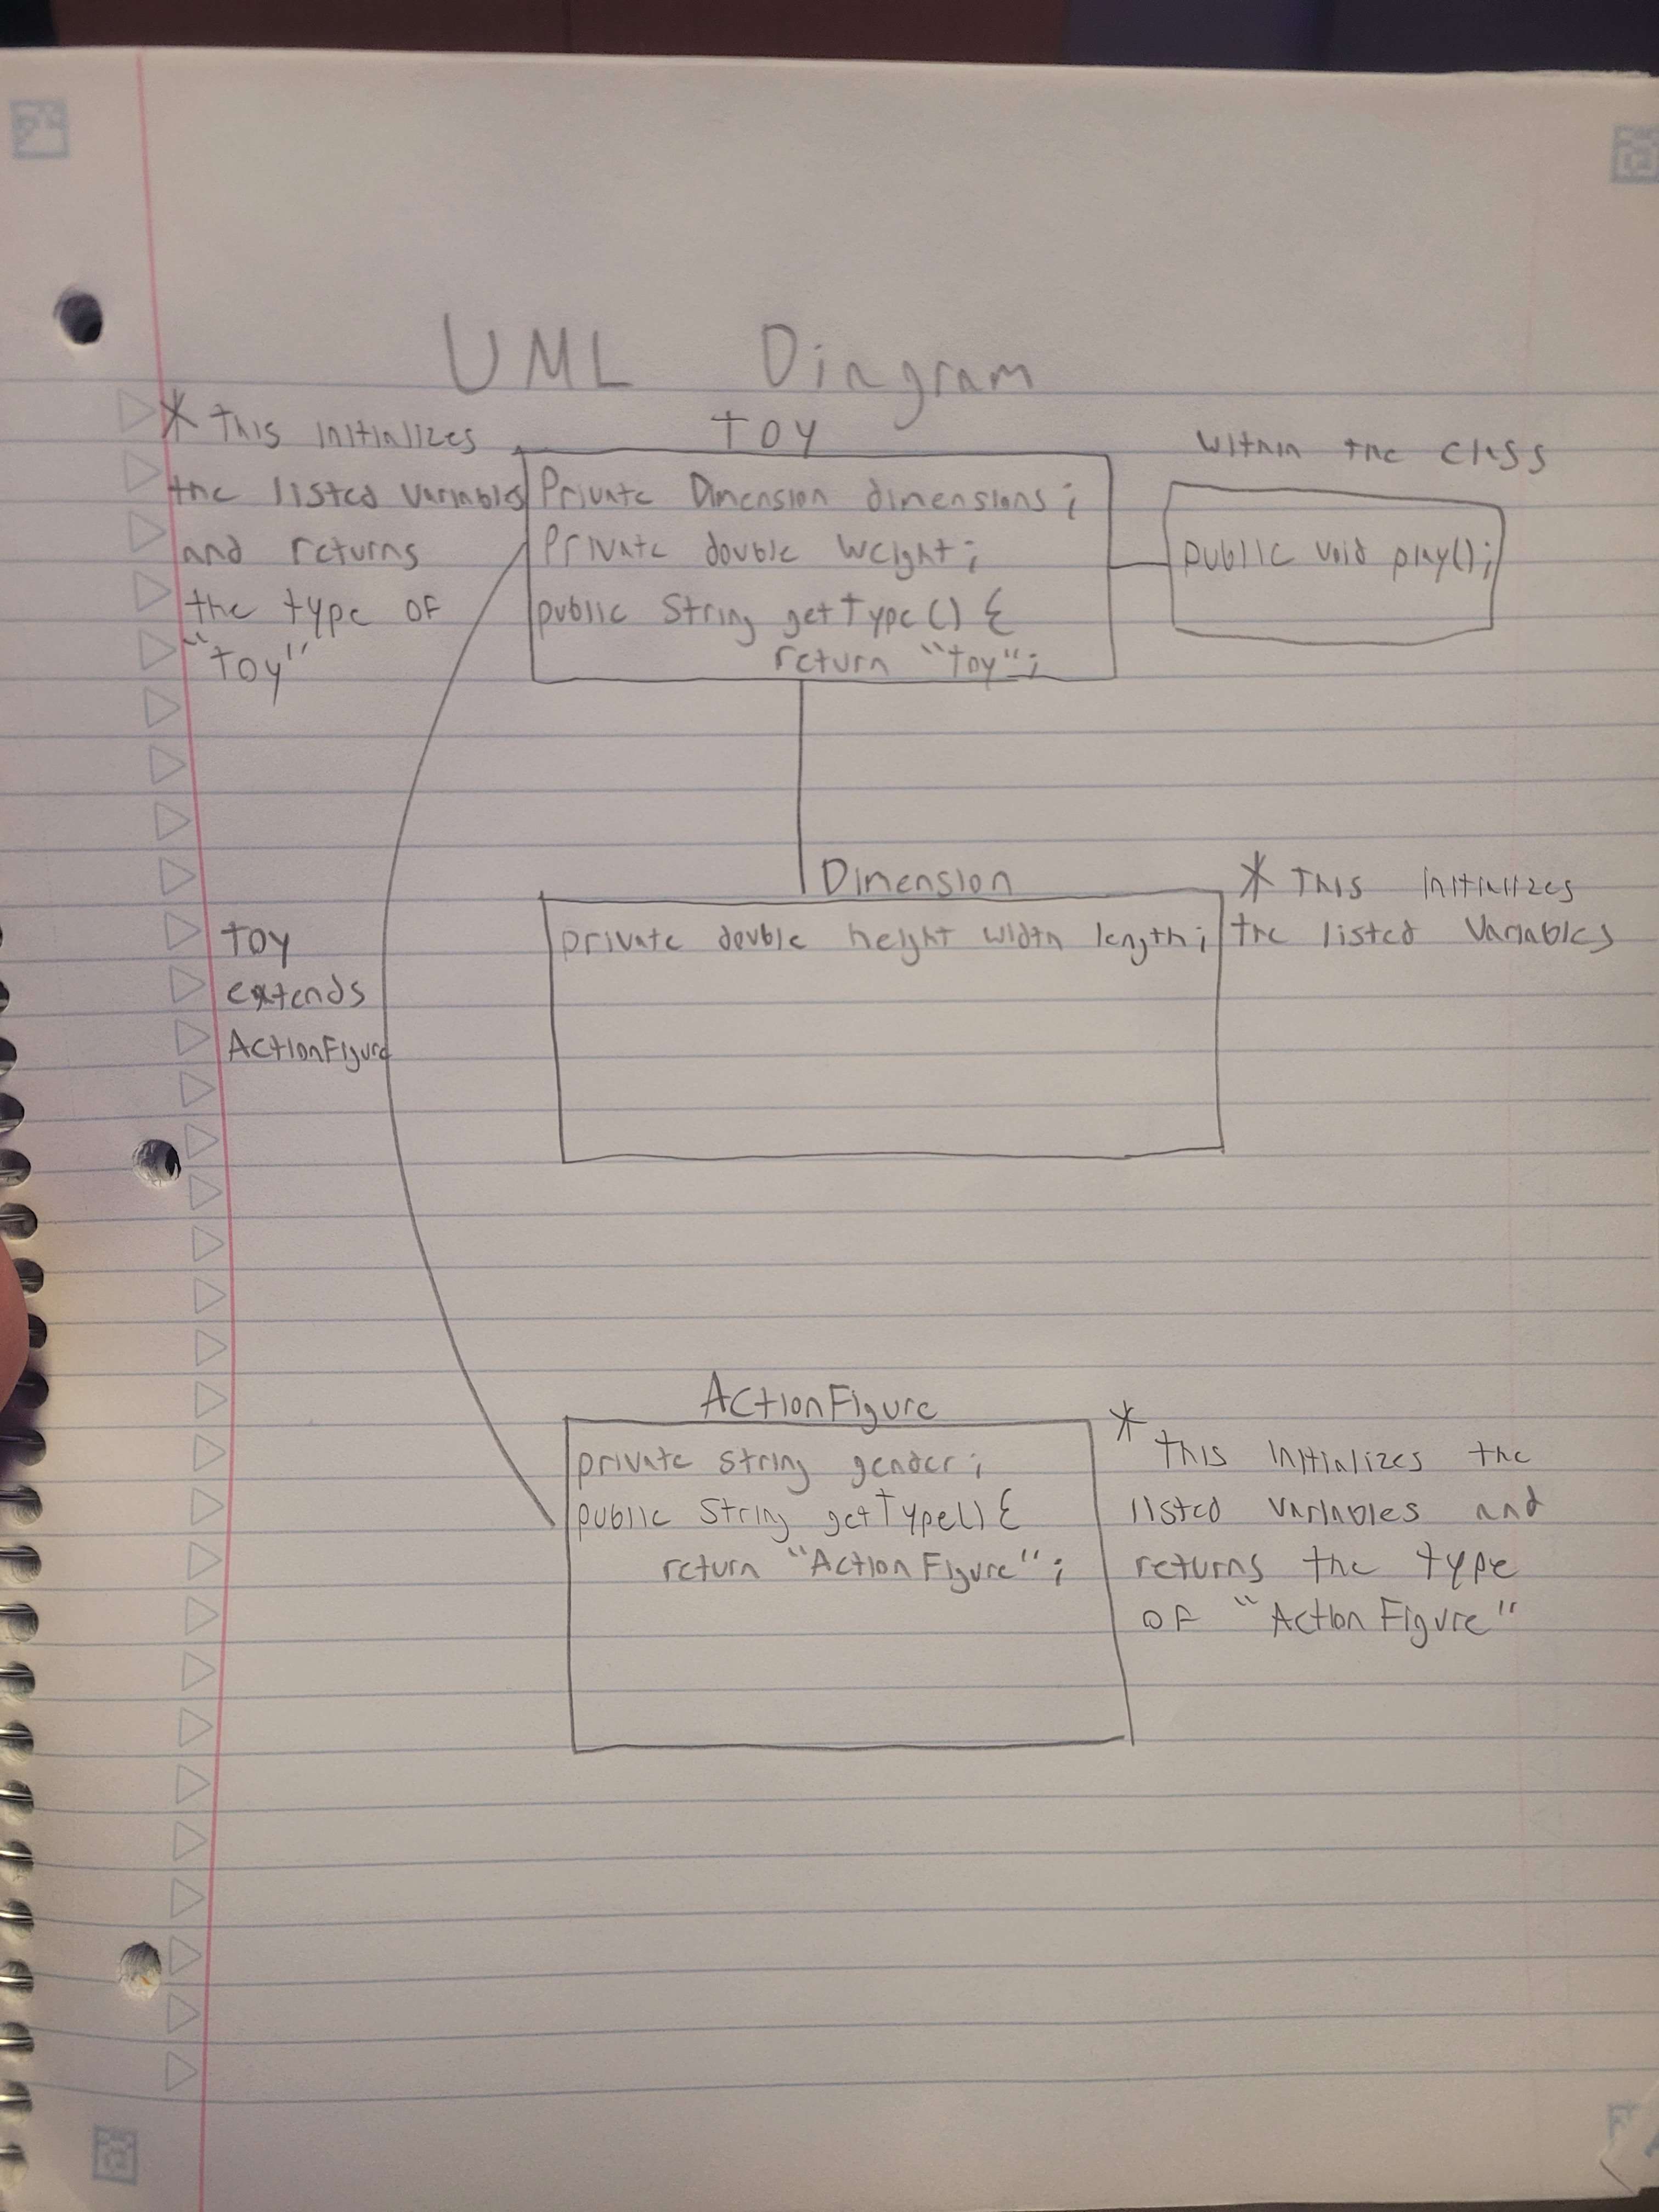 UML Diagram
Toy
* This initializes
the listed variables
and returns
the type of
"Toy"
Private Dimension dimensions;
Private double weight;
public String getType() {
return "Toy";
within the class
public void play();
Dimension
private double height width length;
* This initializes
the listed variables
Toy
extends
ActionFigure
ActionFigure
private String gender;
public String getType() {
return "Action Figure";
* This initializes the
listed variables and
returns the type
of "Action Figure"